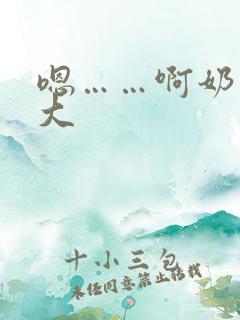 嗯……啊奶
大
十小三包
未经同意禁止转载